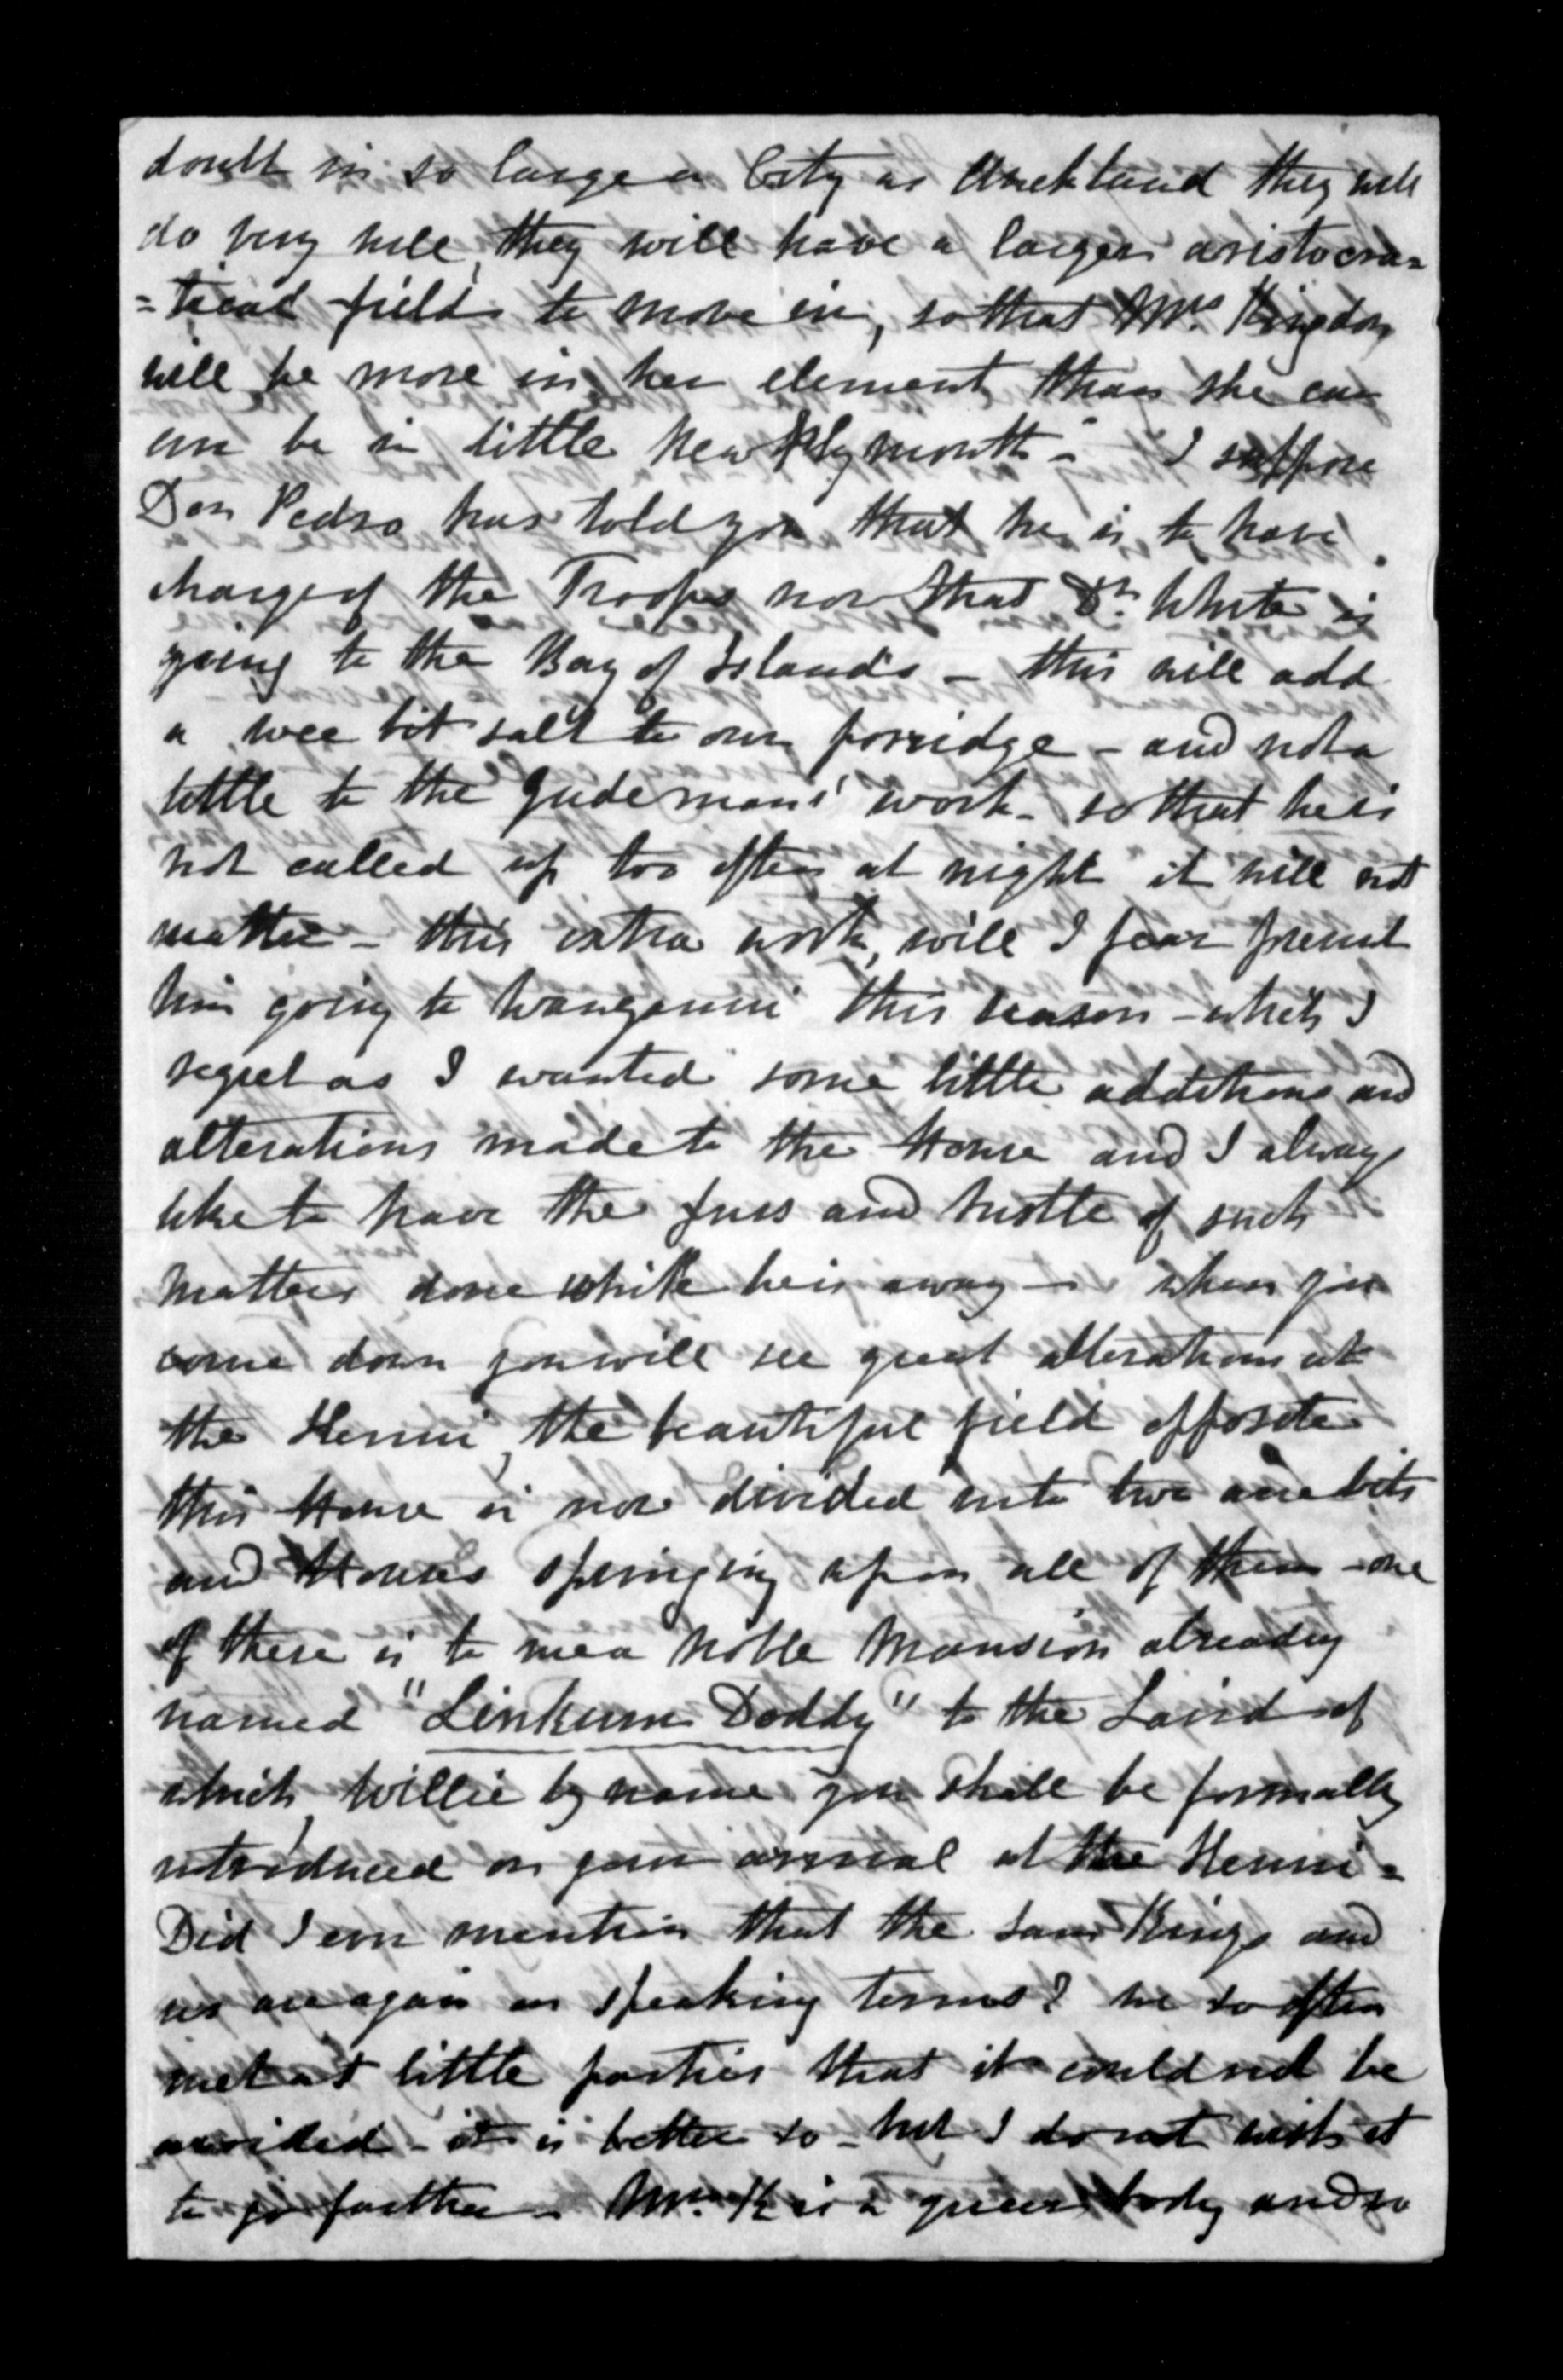 doubt in so large a City as Auckland they will
do very well, they will have a larger aristocra=
=tical field to move in, so that Mrs. Kingdon
will be more in her element than she can
ever be in little New Plymouth - I suppose
Don Pedro has told you that he is to have
charge of the Troops now that Dr. White is
going to the Bay of Islands - this will add
a wee bit salt to our porridge - and not a
little to the Gudeman's work - so that he is
not called up too often at night it will not
matter - this extra work, will I fear prevent
him going to Wanganui this season - which I
regret as I wanted some little additions and
alterations made to the House and I always
like to have the fuss and bustle of such
matters done while he is away - when you
come down you will see great alterations at
the Henui, the beautiful field opposite
this House is now divided into two acre bits
and Houses springing upon all of them - one
of these is to be a Noble Mansion already
named "Linkum Doddy" to the Laird of
which, Willie by name you shall be formally
introduced on your arrival at the Henui -
Did I ever mention that the Sam Kings and
us are again on speaking terms? we so often
met at little parties that it could not be
avoided - it is better so - but I do not wish it
to go farther - Mrs. K is a queer body and so